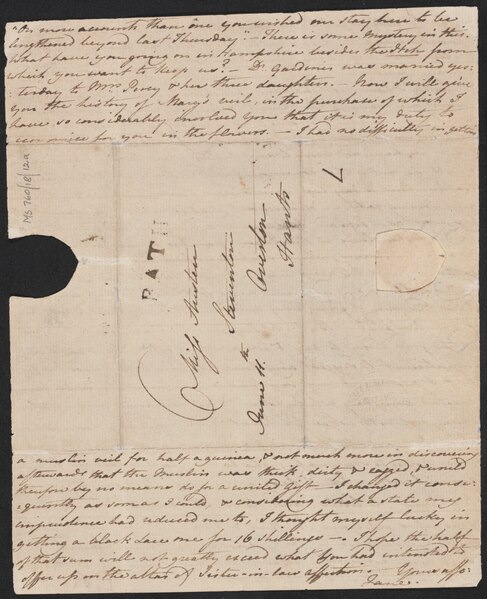 "On more accounts than one you wished our stay here to be
lengthened beyond last Thursday." - There is some Mystery in this.
What have you going on in Hampshire besides the Itch from
which you want to keep us? - Dr Gardiner was married yes-
terday to Mrs Percy & her three daughters. - Now I will give
you the history of Mary's veil, in the purchase of which I
have so considerably involved you that it is my duty to
economise for you in the flowers. - I had no difficulty in getting
Ms 760/18/12a
BATH
7
Miss Austen
Steventon
Overton
Hants
June 11th
a muslin veil for half a guinea, & not much more in discovering
afterwards that the Muslin was thick, dirty & ragged, & would
therefore by no means do for a united Gift. I changed it conse-
quently as soon as I could, & considering what a state my
imprudence had reduced me to, I thought myself lucky in
getting a black lace one for 16 shillings -. I hope the half
of that sum will not greatly exceed what You had intended to
offer up on the altar of Sister-in-law affection. - Yours affec:
Jane.